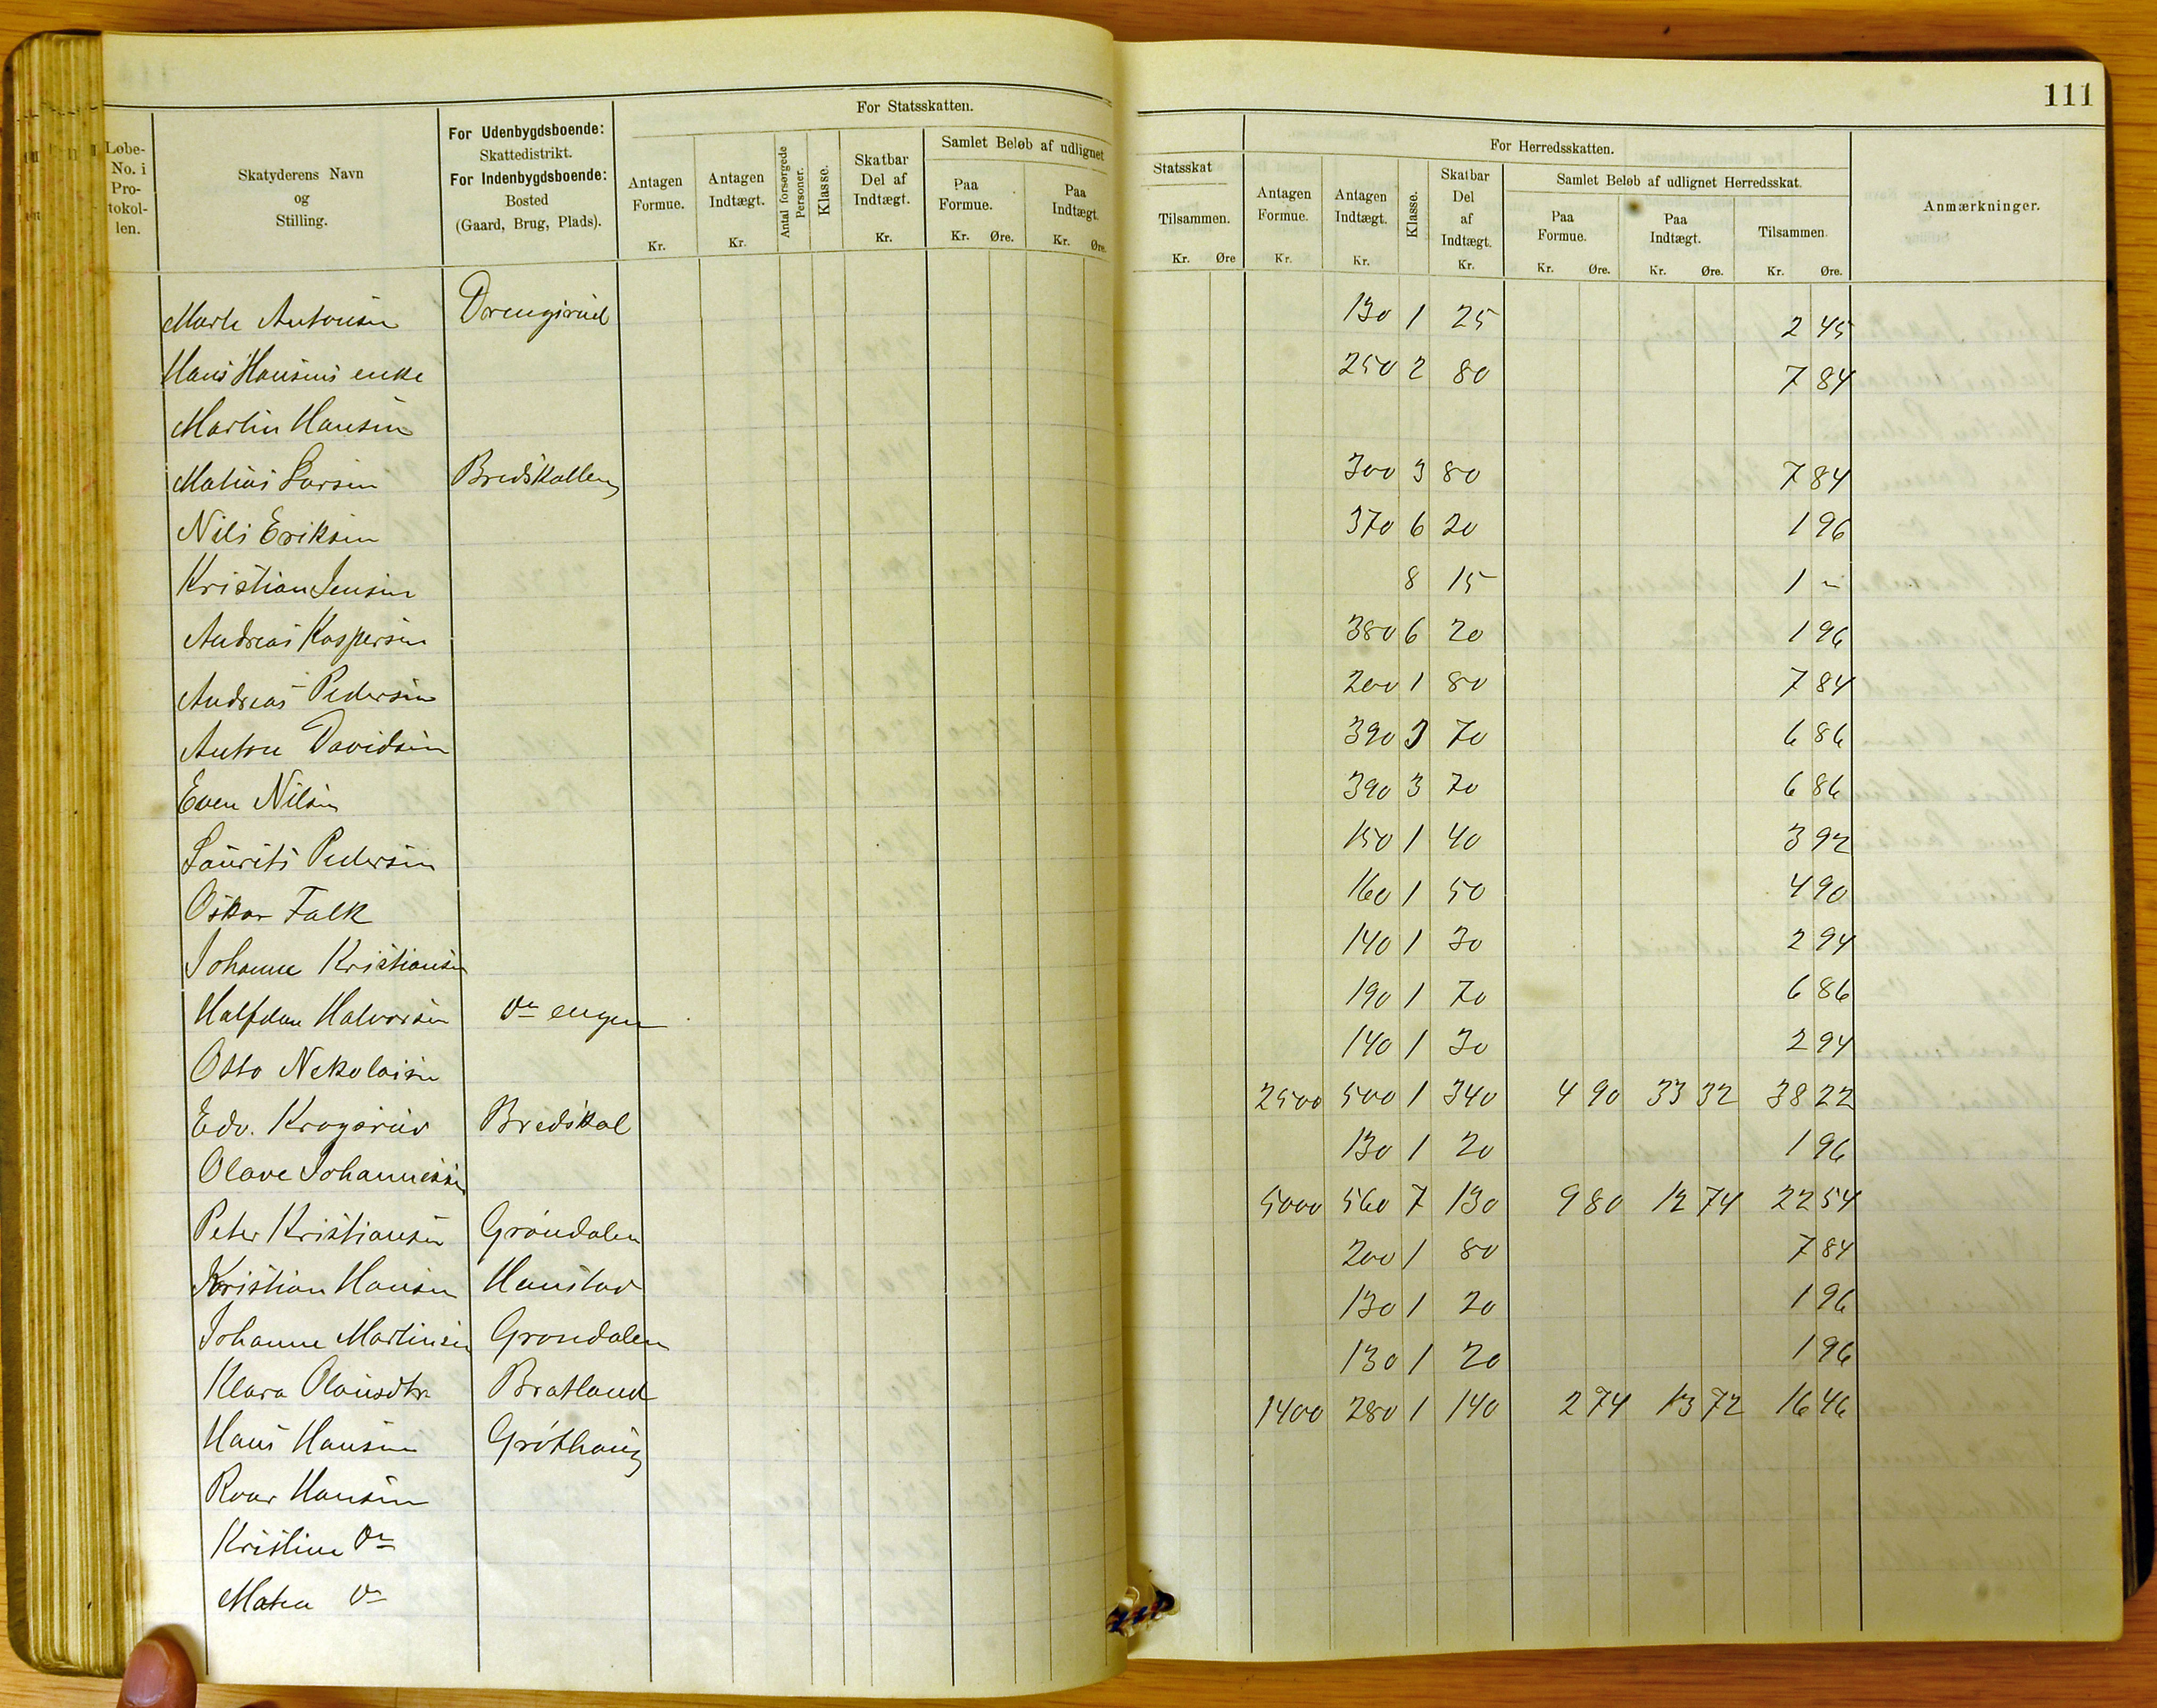 111
For Statsskatten.
For Herredsskatten.
Løbe-No. i Pro-tokol-len.
Skatyderens Navn og Stilling.
For Udenbygdsboende: Skattedistrikt. For Indenbygdsboende: Bosted (Gaard, Brug, Plads).
Antagen Formue. Kr.
Antagen Indtægt. Kr.
Antal forsørgede Personer.
Klasse.
Skatbar Del af Indtægt. Kr.
Samlet Beløb af udlignet Statsskat
Paa Formue. Kr. Øre.
Paa Indtægt. Kr. Øre.
Tilsammen. Kr. Øre
Antagen Formue. Kr.
Antagen Indtægt. Kr.
Klasse.
Skatbar Del af Indtægt. Kr.
Samlet Beløb af udlignet Herredsskat.
Paa Formue. Kr. Øre.
Paa Indtægt. Kr. Øre.
Tilsammen. Kr. Øre.
Anmærkninger.
Marte Antonsen Drengsrud 130 1 25 2 45
Hans Hansens enke 250 2 80 7 84
Martin Hansen
Matias Larsen Bredskallen 300 3 80 7 84
Nils Eriksen 370 6 20 1 96
Kristian Jensen 8 15 1 -
Andreas Kaspersen 380 6 20 1 96
Andreas Pedersen 200 1 80 7 84
Anton Davidsen 390 3 70 6 86
Even Nilsen 390 3 70 6 86
Laurits Pedersen 150 1 40 3 92
Oskar Falk 160 1 50 4 90
Johanne Kristiansen 140 1 30 2 94
Halfdan Halvorsen do engen 190 1 70 6 86
Otto Nekolaisen 140 1 30 2 94
Edv. Krogsrud Bredskal 2500 500 1 340 4 90 33 32 38 22
Olave Johannessen 130 1 20 1 96
Peter Kristiansen Grøndalen 5000 560 7 130 9 80 12 74 22 54
Kristian Hansen Hanstad 200 1 80 7 84
Johanne Martinsen Grøndalen 130 1 20 1 96
Klara Olausdtr Bratland 130 1 20 1 96
Hans Hansen Grøthaug 1400 280 1 140 2 74 13 72 16 46
Roar Hansen
Kristine do
Matea do